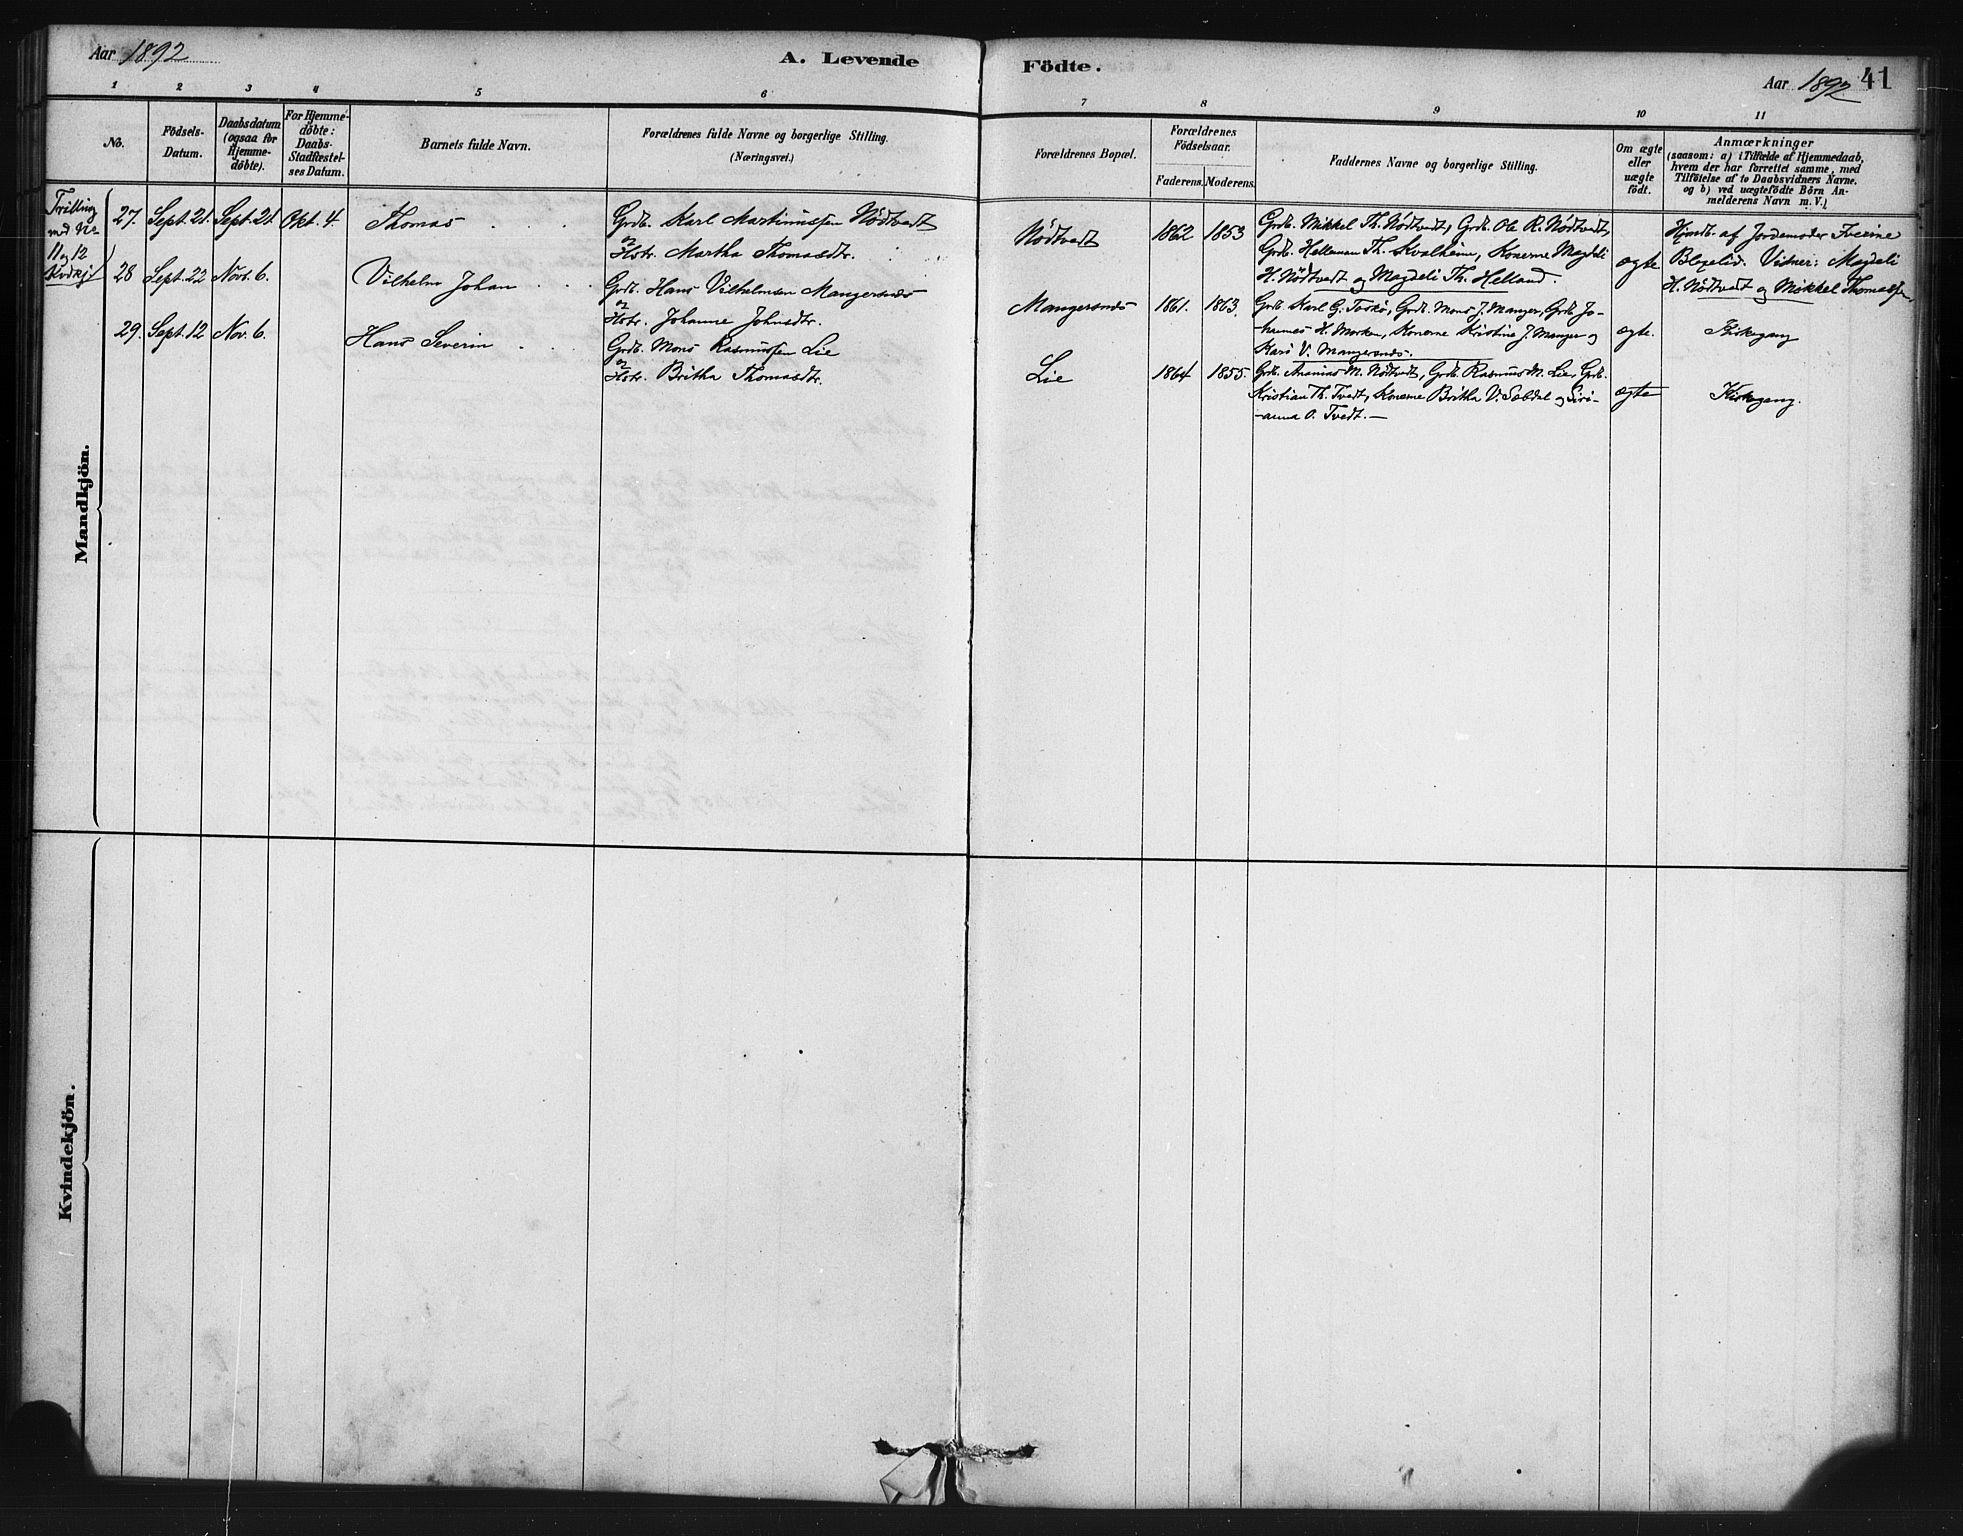 Aar 1892
A. Levende Födte.
Aar 1892
41
1 2 3 4 5 6 7 8 9 10 11
No.
Födsels-Datum.
Daabsdatum (ogsaa for Hjemme-döbte).
For Hjemme-döbte: Daabs-Stadfæstel-ses Datum.
Barnets fulde Navn.
Forældrenes fulde Navne og borgerlige Stilling.
(Næringsvei.)
Forældrenes Bopæl.
Forældrenes Födselsaar.
Faderens. Moderens.
Faddernes Navne og borgerlige Stilling.
Om ægte eller uægte födt.
Anmærkninger
(saasom: a) i Tilfælde af Hjemmedaab,
hvem der har forrettet samme, med
Tilföielse af to Daabsvidners Navne.
og b) ved uægtefödte Börn An-
melderens Navn m. V.)
Mandkjön.
Trilling
med No
11 og 12
Kvdkj.
27. Sept. 21. Sept. 21. Okt. 4. Thomas
Grdb. Karl Martinussen Nödtvedt
og
Hstr. Martha Thomasdtr.
Nödtvedt 1862 1853
Grdb. Mikkel Th. Nödtvedt, Grdb. Ole R. Nödtvedt,
Grdb. Helleman Th. Kvalheim, Konerne Magdeli
H. Nödtvedt og Magdeli Th. Helland.
ægte
Hjmdt. af Jordemoder Iverine
Vidner: Magdeli
H. Nödtvedt og Mikkel Thomassen.
28 Sept. 22 Nov. 6. Vilhelm Johan
Grdb. Hans Vilhelmsen Mangersnes
og
Hstr. Johanne Johnsdtr.
Mangersnes 1861. 1863.
Grdb. Karl G. Toskö, Grdb. Mons J. Manger, Grdb. Jo-
hannes H. Morken, Konerne Kristine J. Manger og
Kari V. Mangersnes.
ægte.
Kirkegang
29. Sept. 12 Nov. 6. Hans Severin
Grdb. Mons Rasmussen Lie
og
Hstr. Britha Thomasdtr.
Lie 1864 1855.
Grdb. Ananias M. Nödtvedt, Grdb. Rasmus M. Lie, Grdb.
Kristian Th. Tvedt, Konerne Britha V. Sæbdal og Siri-
anna O. Tvedt. —
ægte
Kirkegang.
Kvindekjön.